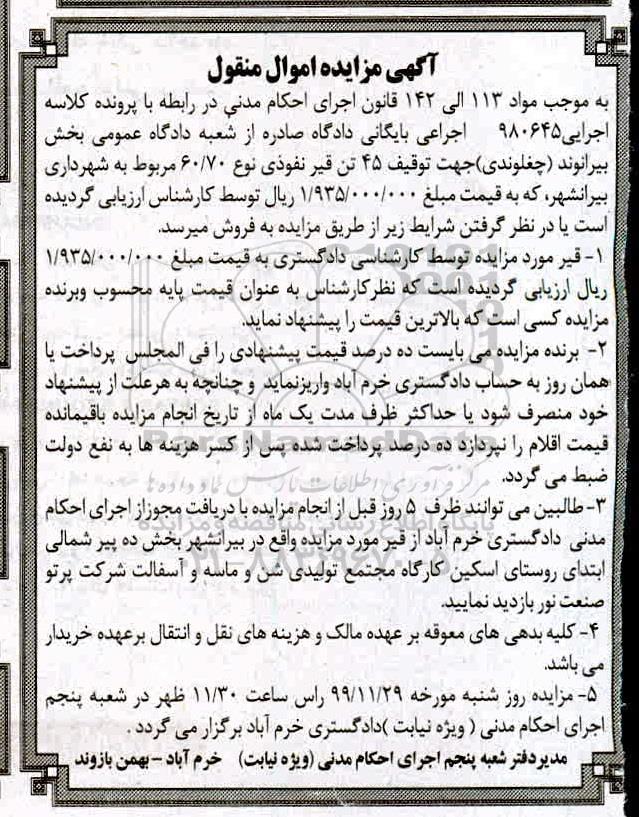 آگهی مزایده اموال منقول
به موجب مواد ۱۱۳ الی ۱۴۲ قانون اجرای احکام مدنی در رابطه با پرونده کلاسه
اجرایی۹۸۰۶۴۵ اجراعی بایگانی دادگاه صادره از شعبه دادگاه عمومی بخش
بیرانوند (چغلوندی)جهت توقیف ۴۵ تن قیر نفوذی نوع ۶۰/۷۰ مربوط به شهرداری
بیرانشهر، که به قیمت مبلغ ۱/۹۳۵/۰۰۰/۰۰۰ ریال توسط کارشناس ارزیابی گردیده
است یا در نظر گرفتن شرایط زیر از طریق مزایده به فروش میرسد.
۱- قیر مورد مزایده توسط کارشناسی دادگستری به قیمت مبلغ ۱/۹۳۵/۰۰۰/۰۰۰
ریال ارزیابی گردیده است که نظرکارشناس به عنوان قیمت پایه محسوب وبرنده
مزایده کسی است که بالاترین قیمت را پیشنهاد نماید.
۲- برنده مزایده می بایست ده درصد قیمت پیشنهادی را فی المجلس پرداخت یا
همان روز به حساب دادگستری خرم آباد واریزنماید و چنانچه به هرعلت از پیشنهاد
خود منصرف شود یا حداکثر ظرف مدت یک ماه از تاریخ انجام مزایده باقیمانده
قیمت اقلام را نپردازد ده درصد پرداخت شده پس از کسر هزینه ها به نفع دولت
ضبط می گردد.
۳- طالبین می توانند ظرف ۵ روز قبل از انجام مزایده با دریافت مجوزاز اجرای احکام
مدنی دادگستری خرم آباد از قیر مورد مزایده واقع در بیرانشهر بخش ده پیر شمالی
ابتدای روستای اسکین کارگاه مجتمع تولیدی شن و ماسه و آسفالت شرکت پرتو
صنعت نور بازدید نمایید.
۴- کلیه بدهی های معوقه بر عهده مالک و هزینه های نقل و انتقال برعهده خریدار
می باشد.
۵- مزایده روز شنبه مورخه ۹۹/۱۱/۲۹ راس ساعت ۱۱/۳۰ ظهر در شعبه پنجم
اجرای احکام مدنی ( ویژه نیابت )دادگستری خرم آباد برگزار می گردد .
مدیردفتر شعبه پنجم اجرای احکام مدنی (ویژه نیابت) خرم آباد - بهمن بازوند
ParsNamadData
پایگاه اطلاع رسانی مناقصه و مزایده